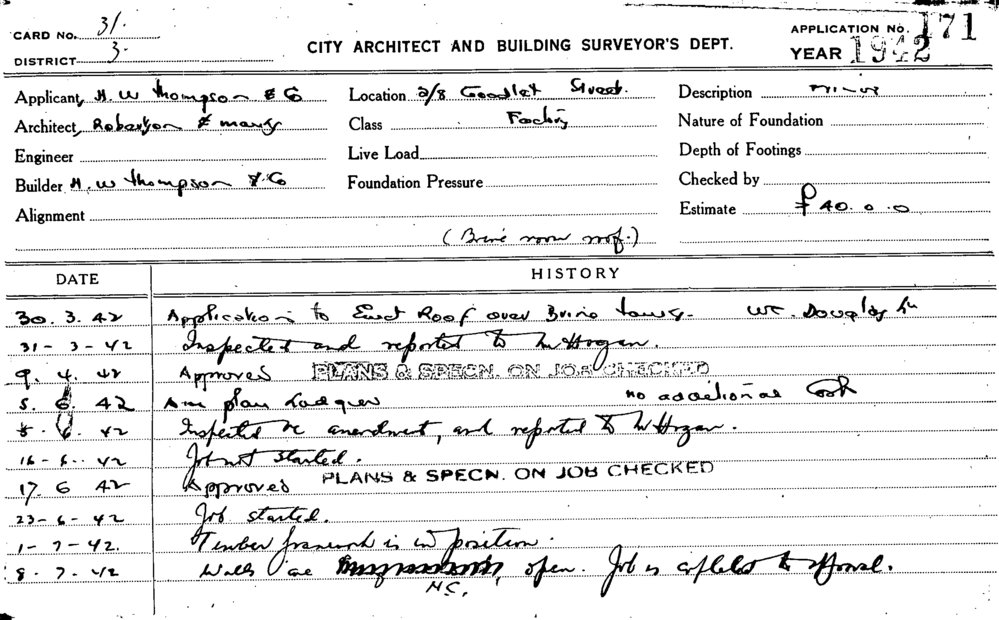 CARD No. 31.
DISTRICT 3.
CITY ARCHITECT AND BUILDING SURVEYOR'S DEPT.
APPLICATION NO. 171
YEAR 1942
Applicant, H. W Thompson & Co
Location 2/8 Goodlet Street.
Description
Architect, Robertson & Marks
Class Factory
Nature of Foundation
Engineer
Live Load
Depth of Footings
Builder H. W Thompson & Co
Foundation Pressure
Checked by
Alignment
Estimate £ 40. 0. 0
(Brine room roof.)
DATE HISTORY
30. 3. 42 Application to Erect Roof over Brine Wm. Douglas
31-3-42 Inspected and reported to Mr Hogan.
9. 4. 42 Approved PLANS & SPECN. ON JOB CHECKED
5. 6. 42 Am plan Lodged no additional Cost
8. 6. 42 Inspected re amendment, and reported to Mr Hogan.
16-6-42 Job not started.
17. 6 42 Approved PLANS & SPECN. ON JOB CHECKED
23-6-42 Job started.
1-7-42. Timber framework is in position.
8. 7. 42 Walls are open. Job is completed to approval.
H.C.